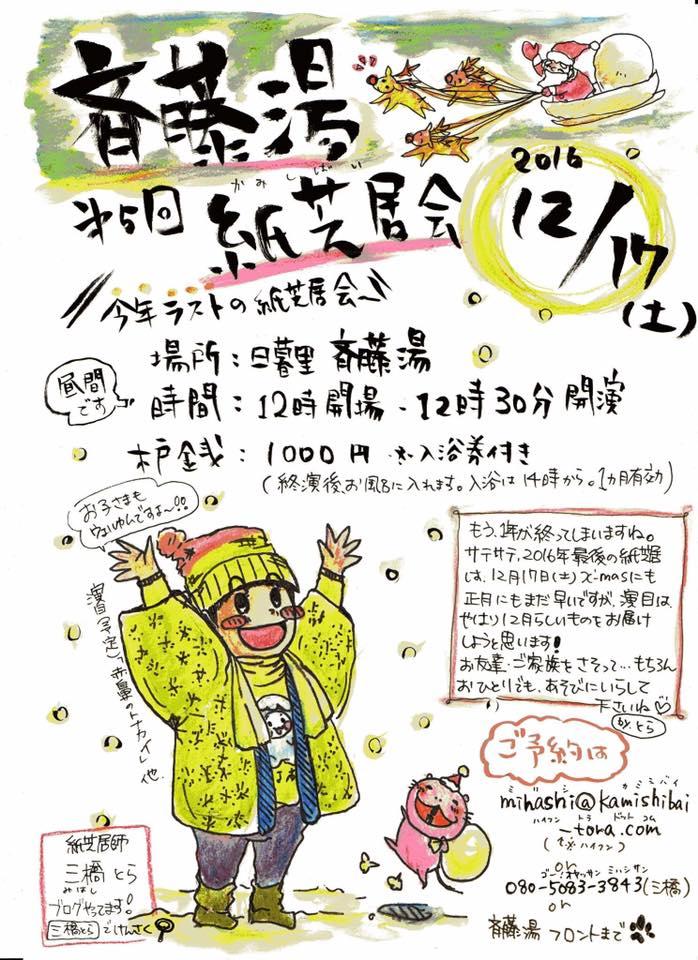 斉藤湯
かみしばい
第5回 紙芝居会
2016
12/17
(土)
今年ラストの紙芝居会〜
場所：日暮里 斉藤湯
昼間です
時間：12時開場・12時30分開演
木戸銭：1000円 ※入浴券付き
(終演後、お風呂に入れます。入浴は14時から。1カ月有効)
お子さまも
ウェルカムですよ〜!!
演目(予定)、赤鼻のトナカイ 他
もう、1年が終ってしまいますね。
サテサテ、2016年最後の紙芝居
は、12月17日(土) X'masにも
正月にもまだ早いですが、演目は、
やはり12月らしいものをお届け
しようと思います!
お友達・ご家族をさそって…もちろん
おひとりでも、あそびにいらして
下さいね♡
by.とら
ご予約は
ミハシ カミシバイ
mihashi@kamishibai
ハイフン トラ ドットコム
-tora.com
(ハイフン)
or
080-5083-3843(三橋)
or
斉藤湯 フロントまで
紙芝居師
三橋とら
みはし
ブログやってます!
三橋とら でけんさく